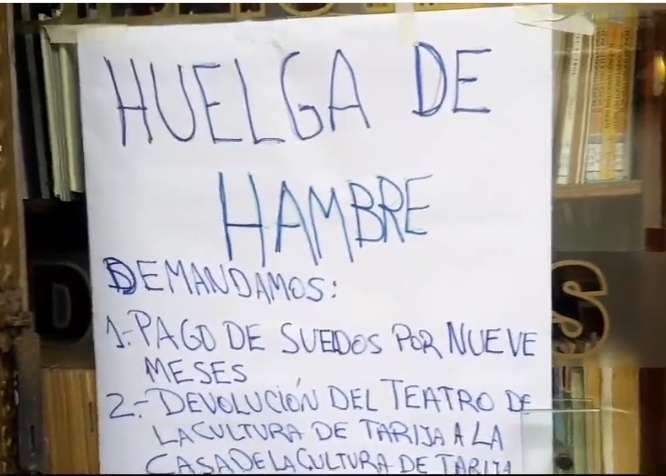 HUELGA DE
HAMBRE
DEMANDAMOS:
1.- PAGO DE SUELDOS POR NUEVE
MESES
2.- DEVOLUCIÓN DEL TEATRO DE
LA CULTURA DE TARIJA A LA
CASA DE LA CULTURA DE TARIJA